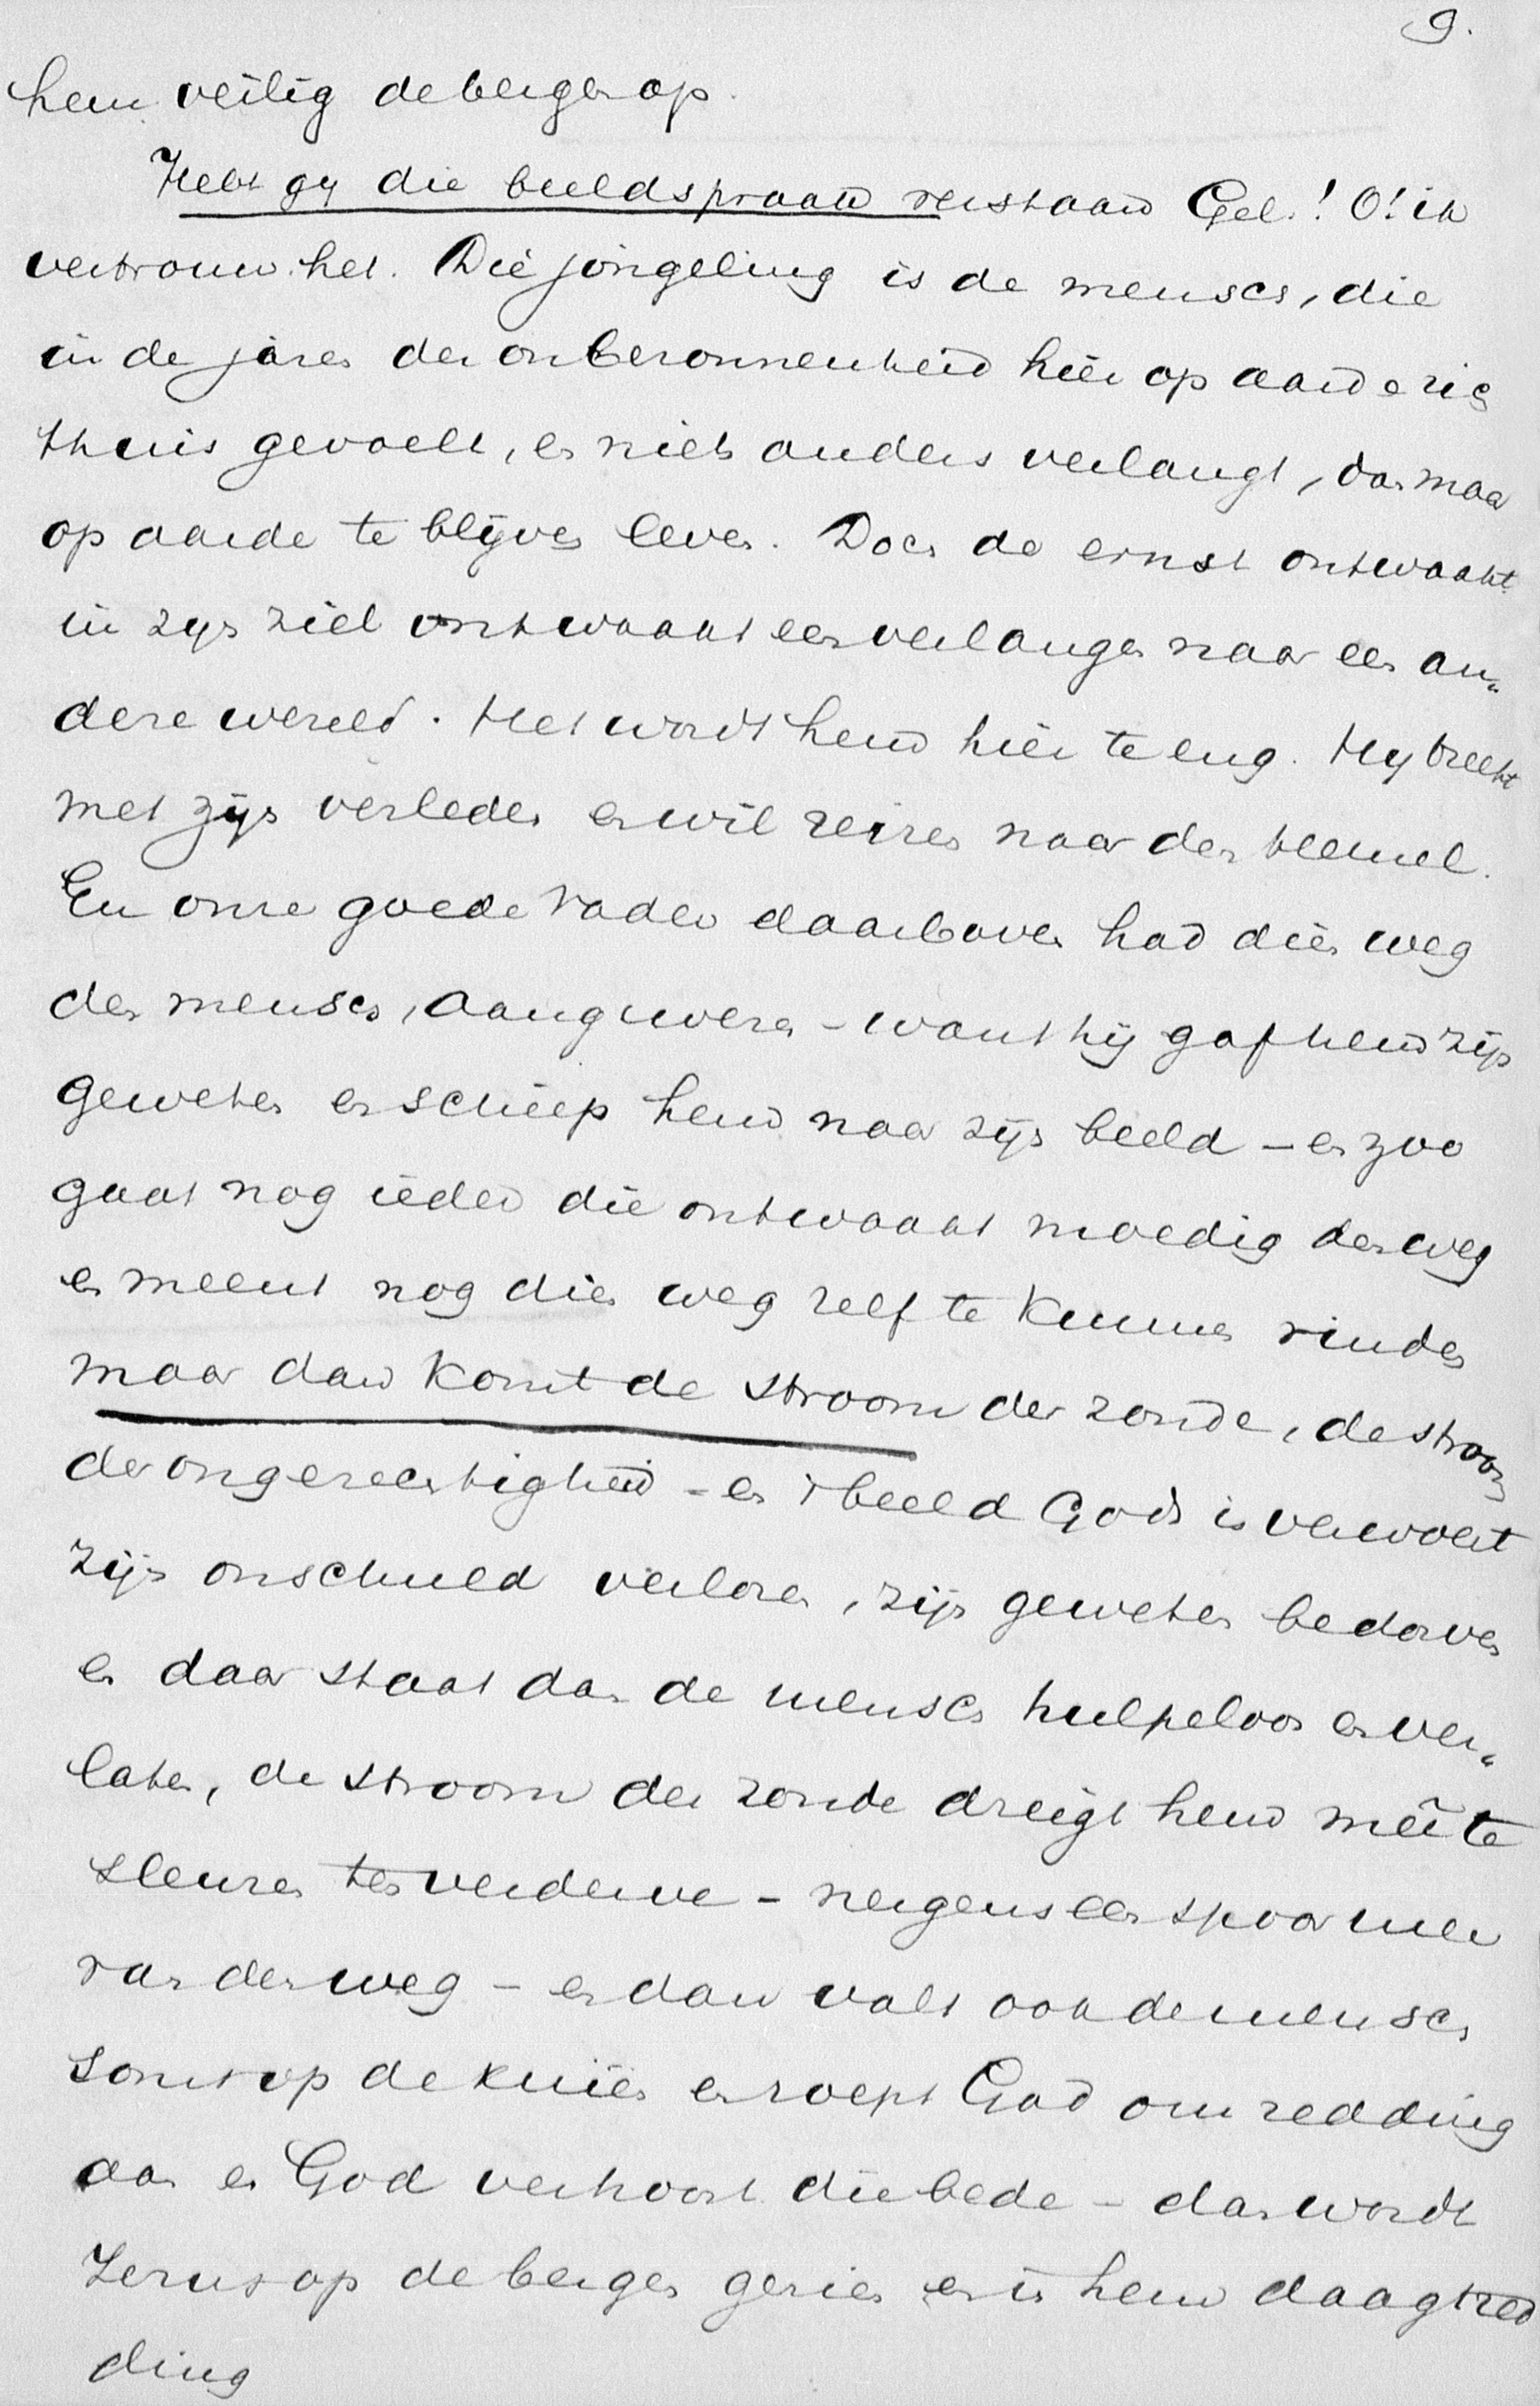 9.
hem veilig de bergen op.
Hebt gy die beeldspraak verstaan Gel.! O! ik
vertrouw het. Die jongeling is de mensch, die
in de jaren der onbezonnenheid hier op aarde zich
thuis gevoelt, en niets anders verlangt, dan maar
op aarde te blijven leven. Doch de ernst ontwaakt
in zyn ziel ontwaakt een verlangen naar een an„
dere wereld. Het wordt hem hier te eng. Hy breekt
met zijn verleden en wil reizen naar den hemel.
En onze goede Vader daarboven had dien weg
den mensch, aangewezen – want hij gaf hem zijn
geweten en schiep hem naar zijn beeld – en zoo
gaat nog ieder die ontwaakt moedig den weg
en meent nog dien weg zelf te kunnen vinden
maar dan komt de stroom der zonde, de stroom
der ongerechtigheid – en 't beeld Gods is verwoest
zijn onschuld verloren, zijn geweten bedorven
en daar staat dan de mensch hulpeloos en ver„
laten, de stroom der zonde dreigt hem meê te
sleuren ten verderve – nergens een spoor meer
van den weg – en dan valt ook de mensch
soms op de knieën en roept God om redding
aan en God verhoort die bede – dan wordt
Jezus op de bergen gezien en in hem daagt red
ding